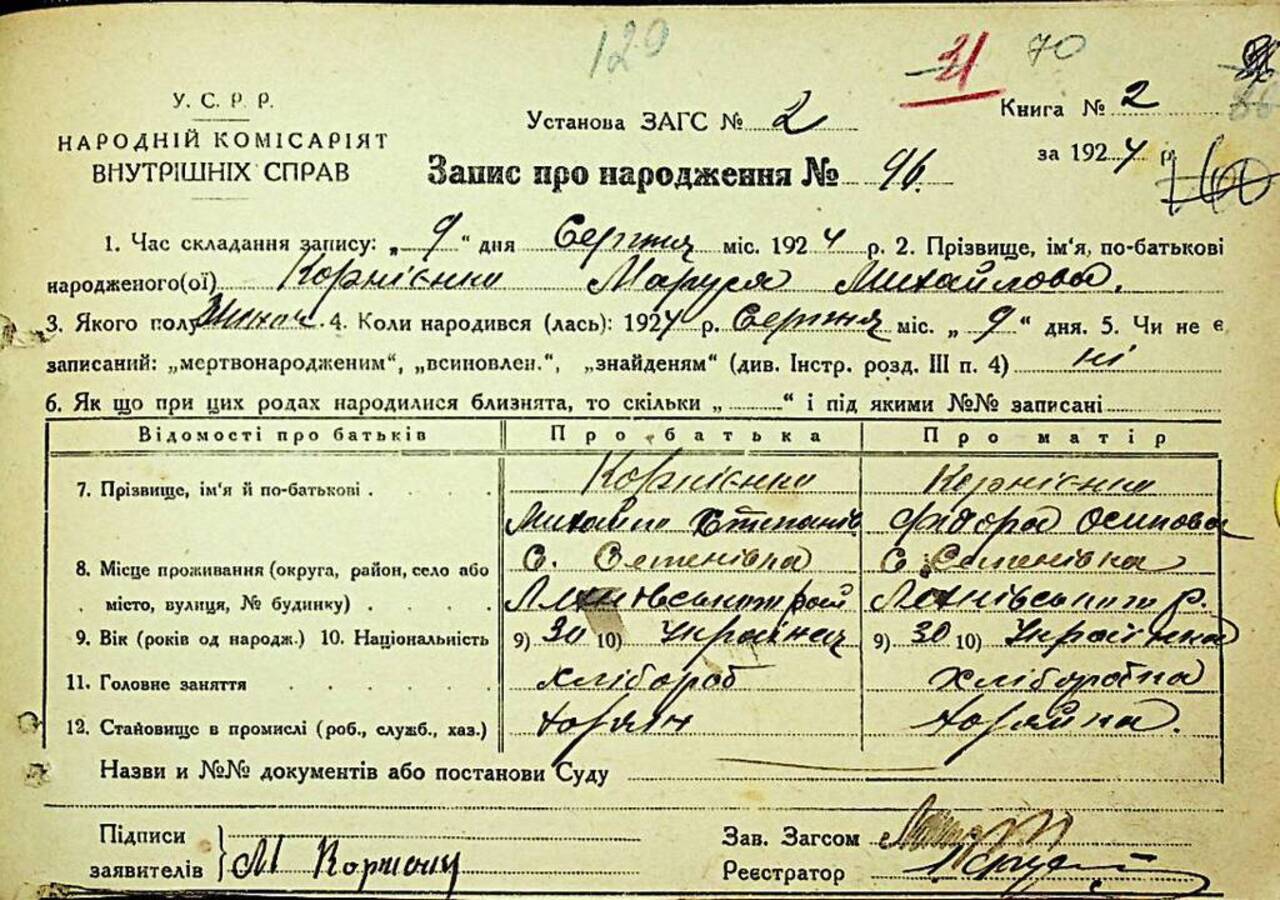 120 31 70
У. С. Р. Р.
НАРОДНІЙ КОМІСАРІЯТ
ВНУТРІШНІХ СПРАВ
Установа ЗАГС № 2
Книга № 2
за 1924 р.
Запис про народження № 96.
1. Час складання запису: „ 9 “ дня Серпня міс. 1924 р. 2. Прізвище, ім'я, по-батькові
народженого(ої) Корнієнко Маруся Михайлова.
3. Якого полу жіноч. 4. Коли народився (лась): 1924 р. Серпня міс. „ 9 “ дня. 5. Чи не є
записаний: „мертвонародженим“, „всиновлен.“, „знайденям“ (див. Інстр. розд. III п. 4) ні
6. Як що при цих родах народилися близнята, то скільки „ “ і під якими №№ записані
Відомості про батьків Про батька Про матір
7. Прізвище, ім'я й по-батькові Корнієнко Корнієнко
Михайло Степанів Фидора Осипова
8. Місце проживання (округа, район, село або С. Семенівка С. Семенівка
місто, вулиця, № будинку) рай Лохнівського р.
9. Вік (років од народж.) 10. Національність 9) 30 10) Українец 9) 30 10) Українка
11. Головне заняття хлібороб хліборобка
12. Становище в промислі (роб., служб., хаз.)
Назви и №№ документів або постанови Суду
Підписи
заявителів М
Зав. Загсом
Реєстратор